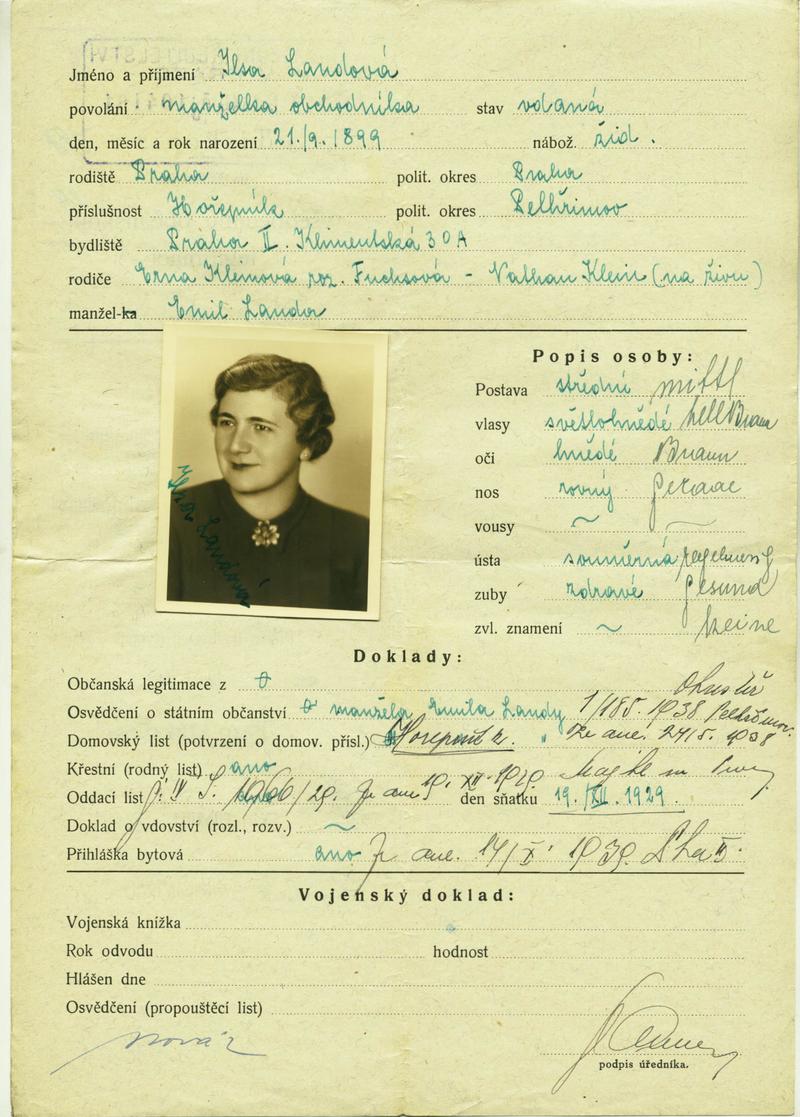 Jméno a příjmení Ilsa Landová
povolání manželka obchodníka stav vdaná
den, měsíc a rok narození 21./9. 1899 nábož. žid.
rodiště Praha polit. okres Praha
příslušnost Hořepník polit. okres Pelhřimov
bydliště Praha II. Klimentská 30A
rodiče Erna Kleinová roz. Fuchsová - Nathan Klein (na živu)
manžel-ka Emil Landa
Popis osoby:
Postava střední mittl
vlasy světlohnědé hell Braun
oči hnědé Braun
nos rovný gerade
vousy ~ ~
ústa souměrná regelmessig
zuby zdravé gesund
zvl. znamení ~ keine
Ilsa Landová
Doklady:
Občanská legitimace z
Osvědčení o státním občanství manžela Emila Landy 1/185. 1938 Pelhřimov
Domovský list (potvrzení o domov. přísl.) Horepník " ze dne 24/5. 1938
Křestní (rodný list) ano
Oddací list den sňatku 19./XII. 1929.
Doklad o vdovství (rozl., rozv.) ~
Přihláška bytová ano ze dne 14/X. 1939
Vojenský doklad:
Vojenská knížka
Rok odvodu hodnost
Hlášen dne
Osvědčení (propouštěcí list)
podpis úředníka.